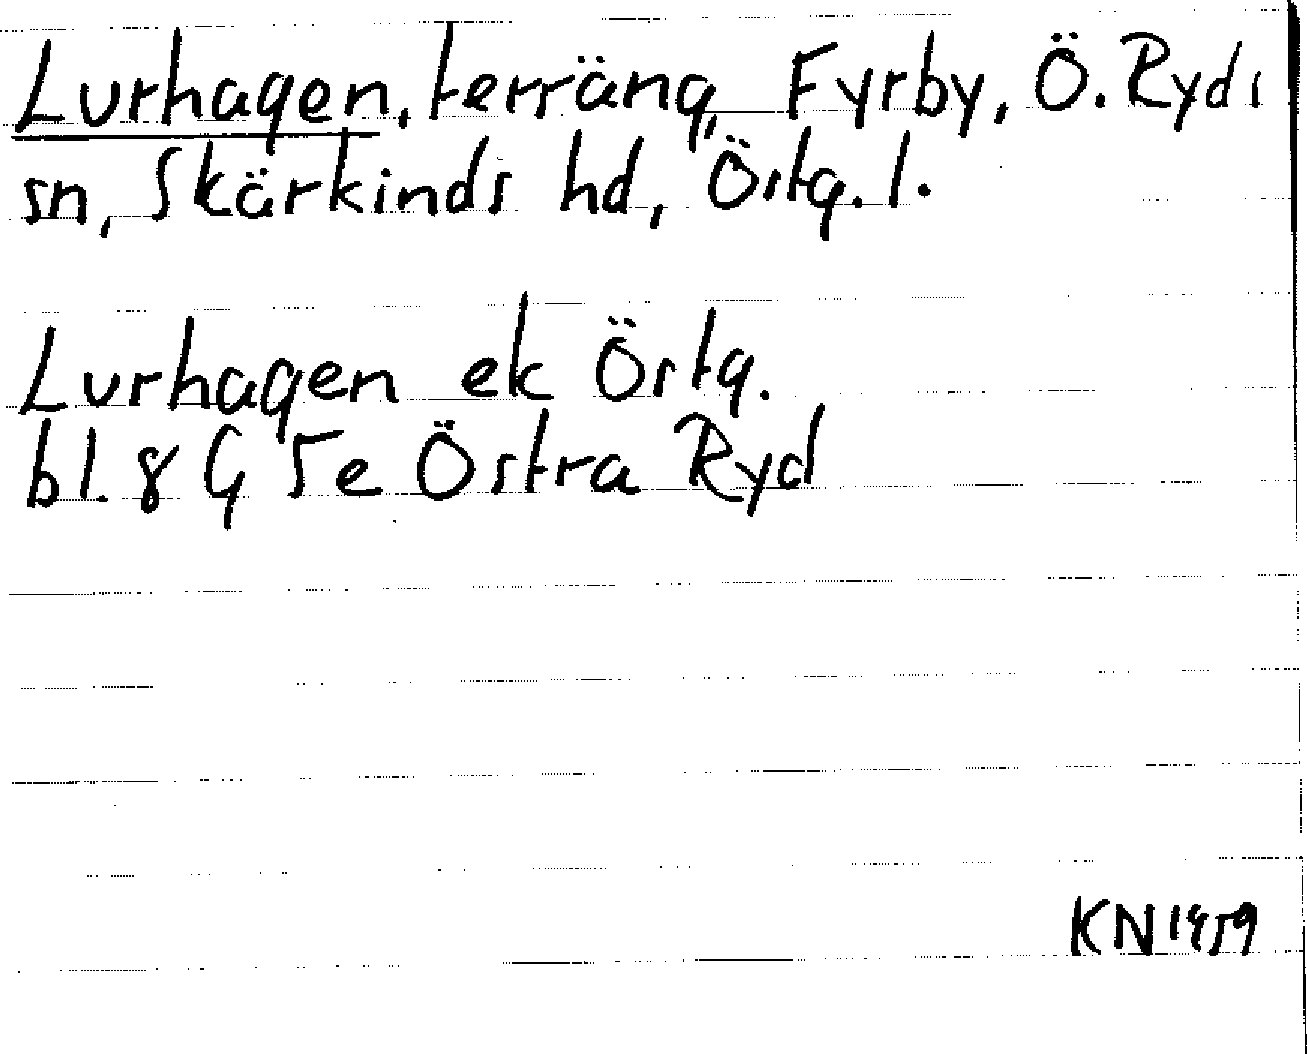 Lurhagen, terräng, Fyrby, Ö. Ryds
sn, Skärkinds hd, Östg. l.
Lurhagen ek Östg.
bl. 8 G 5e Östra Ryd
KN 1959